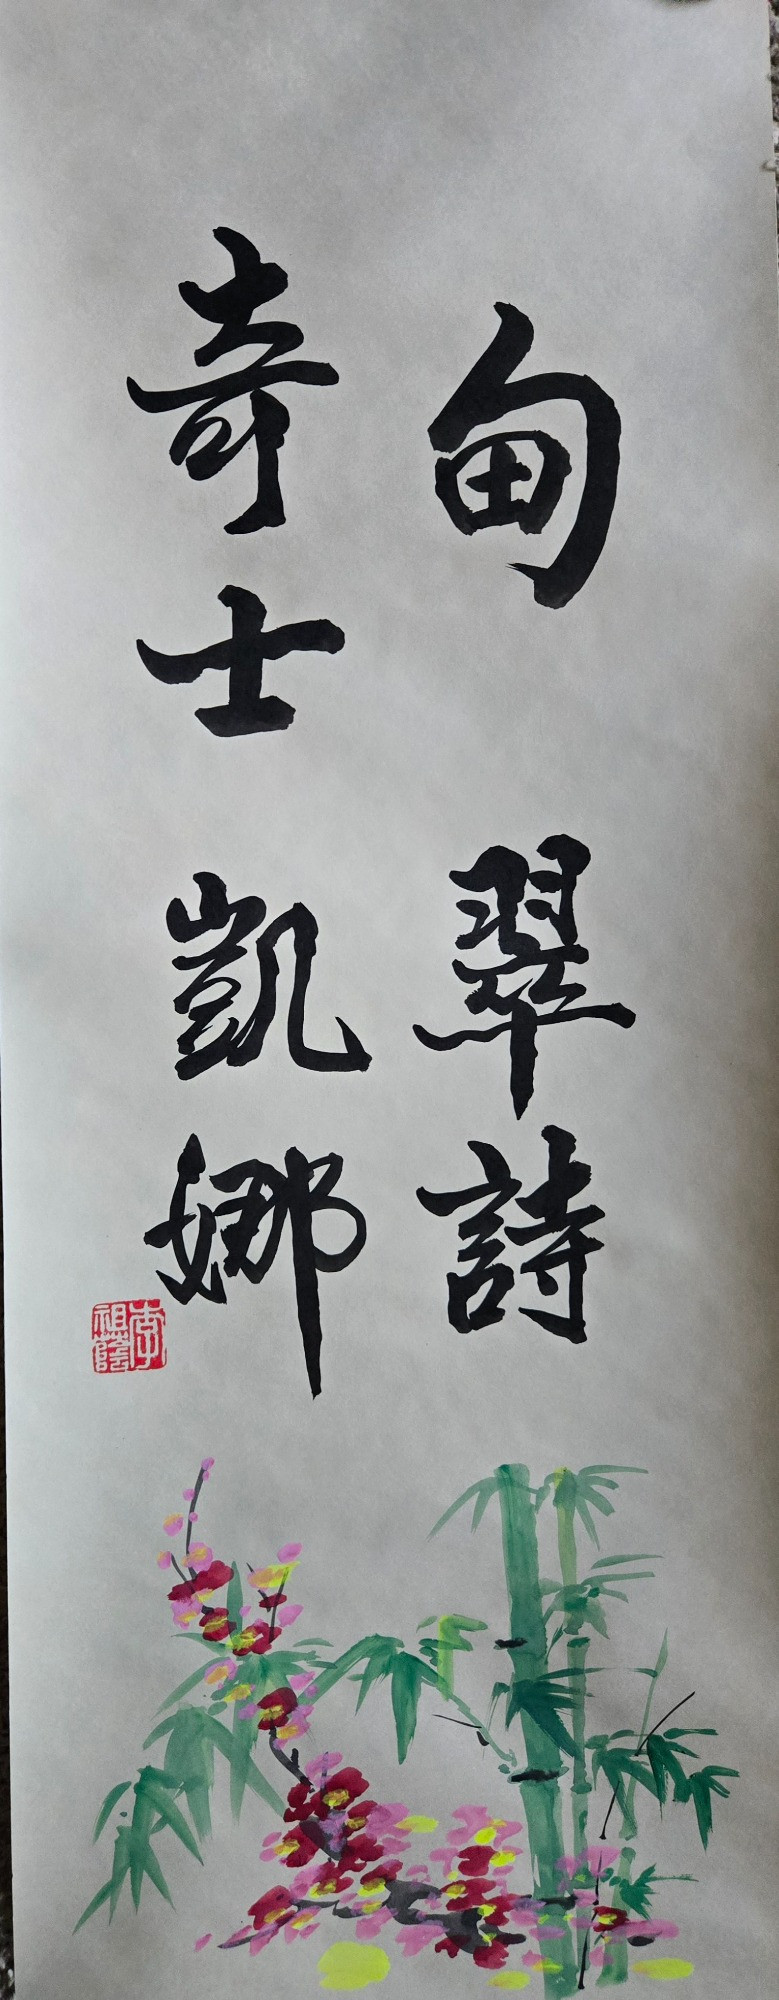 甸翠詩
奇士凱娜
李祖蔭